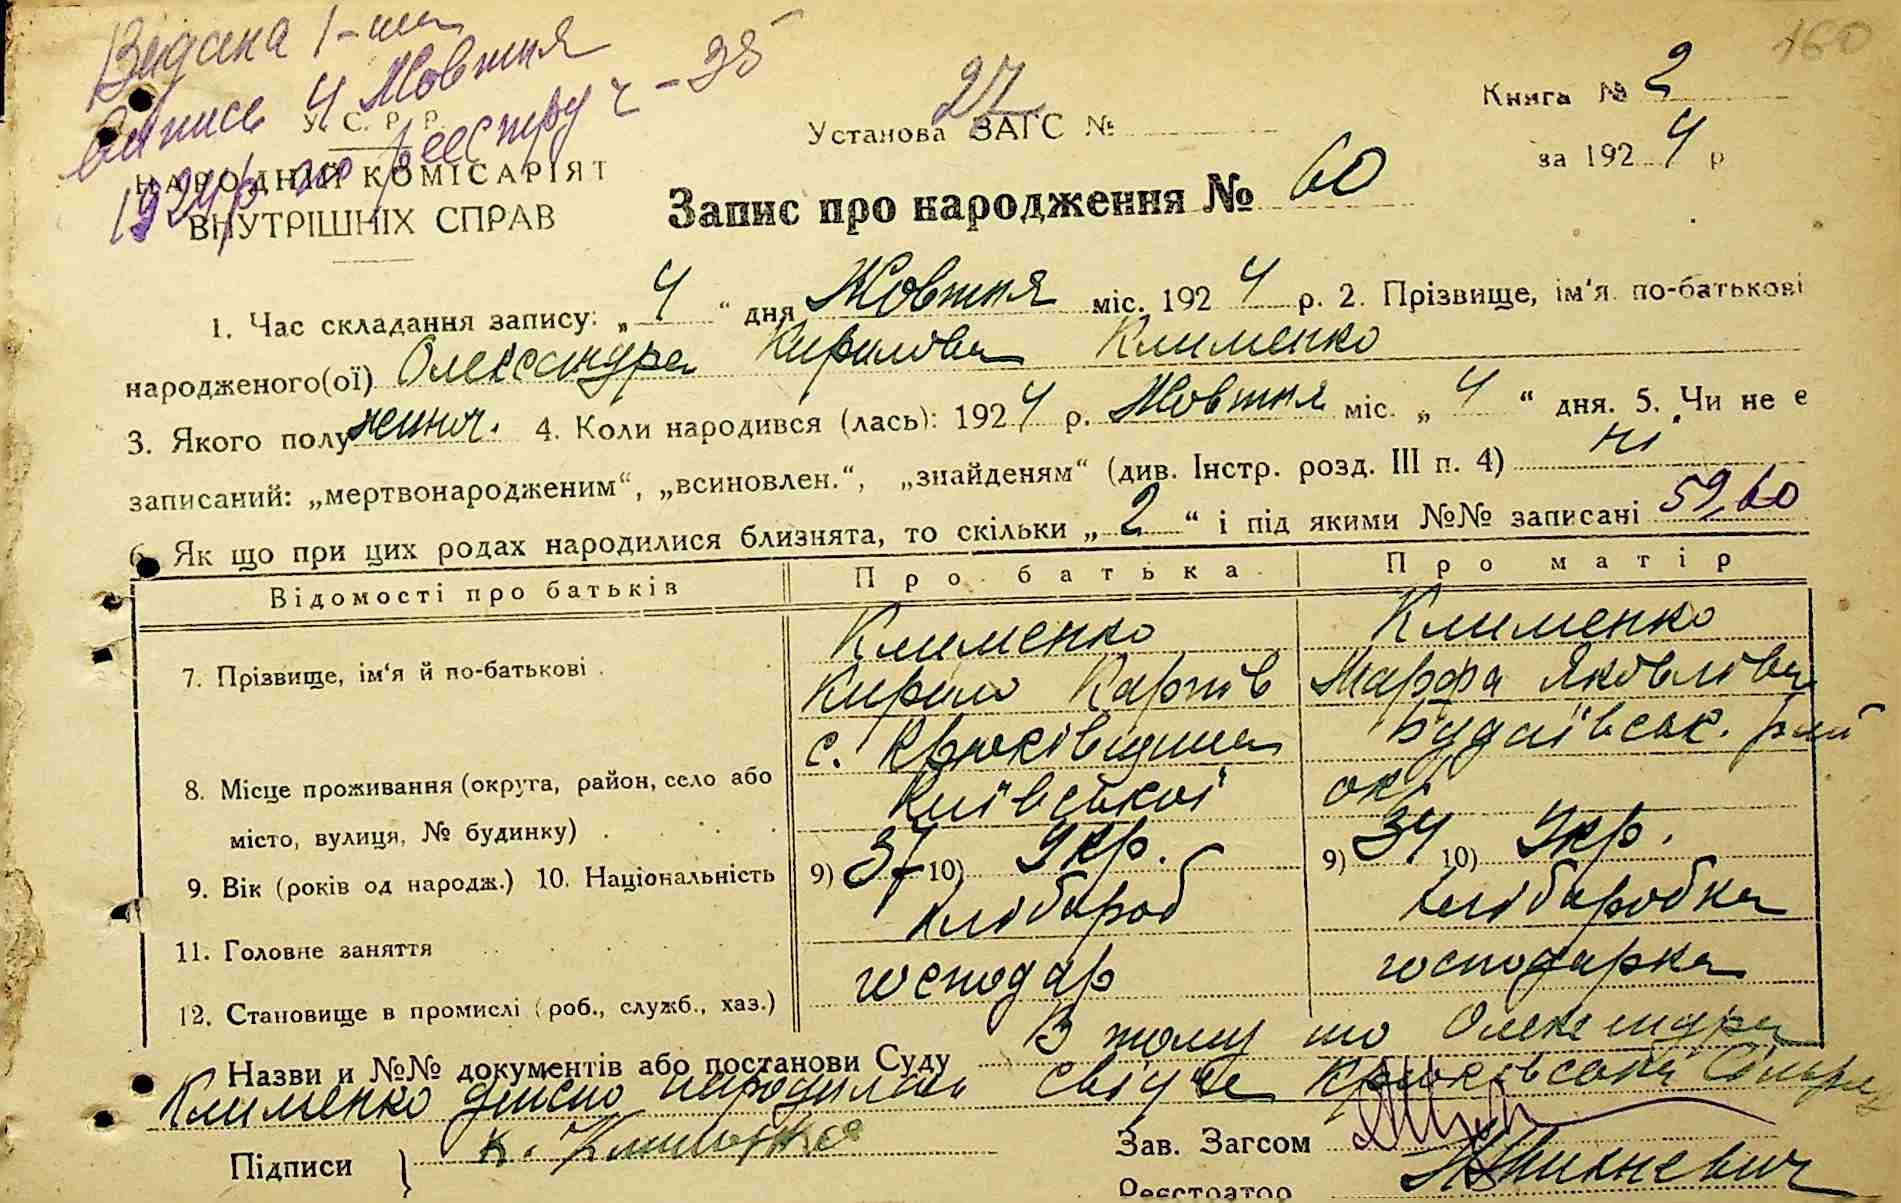 160
Видана 1-ша
випись 4 Жовтня
1924 р. по реєстру ч - 35
У. С. Р. Р.
НАРОДНИЙ КОМІСАРІЯТ
ВНУТРІШНІХ СПРАВ
Установа ЗАГС № 27
Книга № 2
за 1924 р
Запис про народження № 60
1. Час складання запису: „4“ дня Жовтня міс. 1924 р. 2. Прізвище, ім'я по-батькові
народженого(ої) Олександра Кирилова Клименко
3. Якого полу жіноч. 4. Коли народився (лась): 1924 р. Жовтня міс. „4“ дня. 5. Чи не є
записаний: „мертвонародженим“, „всиновлен.“, „знайденям“ (див. Інстр. розд. III п. 4) ні
6. Як що при цих родах народилися близнята, то скільки „2“ і під якими №№ записані 59, 60
Відомості про батьків Про батька Про матір
7. Прізвище, ім'я й по-батькові Клименко Клименко
Кирило Карпів Марфа Яковлівна
8. Місце проживання (округа, район, село або с. Крюківщина Будаївськ. рай
місто, вулиця, № будинку) Київської окр.
9. Вік (років од народж.) 10. Національність 9) 37 10) Укр. 9) 34 10) Укр.
11. Головне заняття хлібароб хлібаробка
12. Становище в промислі (роб., служб., хаз.) господар господарка
Назви и №№ документів або постанови Суду В тому що Олександра
Клименко дійсно народилась свідче Крюківська Сільрад
Підписи К. Клименко
Зав. Загсом
Реєстратор